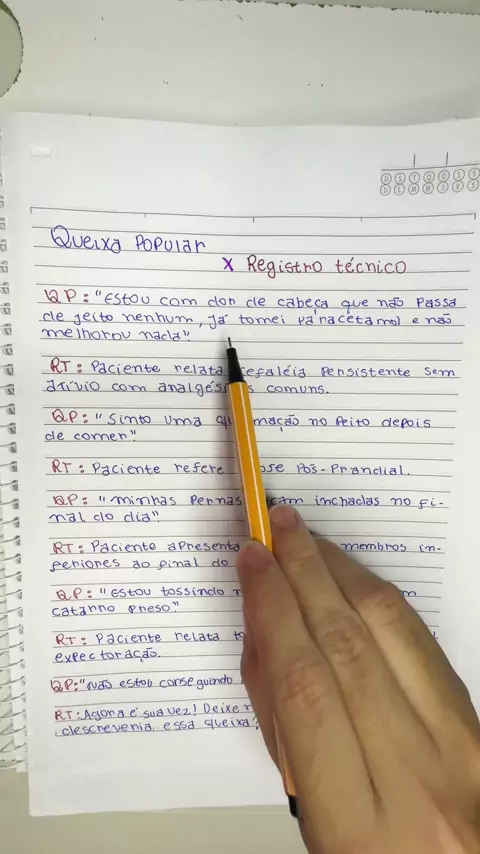 D S T Q Q S S
D L M M J V S
Queixa Popular
X Registro técnico
QP: "Estou com dor de cabeça que não passa
de jeito nenhum, já tomei paracetamol e não
melhorou nada".
RT: Paciente relata persistente sem
alívio com comuns.
QP: "Sinto uma no peito depois
de comer".
RT: Paciente refere Pós-Prandial.
QP: "minhas Pernas inchadas no fi-
nal do dia".
RT: Paciente apresenta membros in-
feriores ao final do
QP: "Estou tossindo
catarro preso".
RT: Paciente relata
expectoração.
QP: "Não estou conseguindo
RT: Agora é sua vez!
descreveria essa queixa?